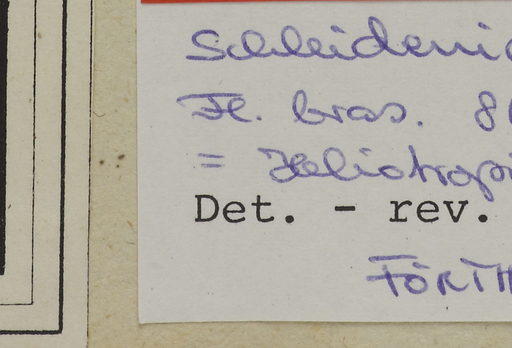 Schleideni
Fl. bras. 8
= Heliotropi
Det. - rev.
FÖRTH